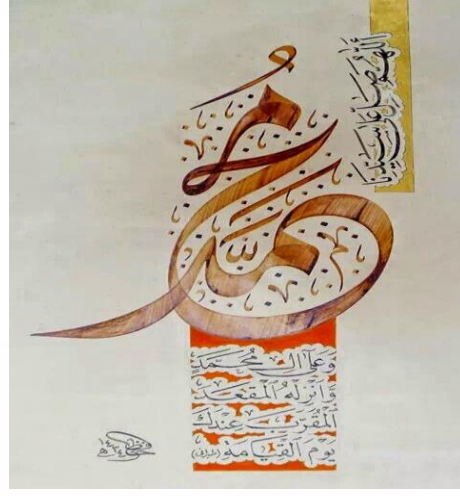 اللَّهُمَّ صَلِّ عَلَى سَيِّدِنَا
مُحَمَّد
وَعَلَى آلِ مُحَمَّدٍ
وَأَنْزِلْهُ الْمَقْعَدَ
الْمُقَرَّبَ عِنْدَكَ
يَوْمَ الْقِيَامَةِ